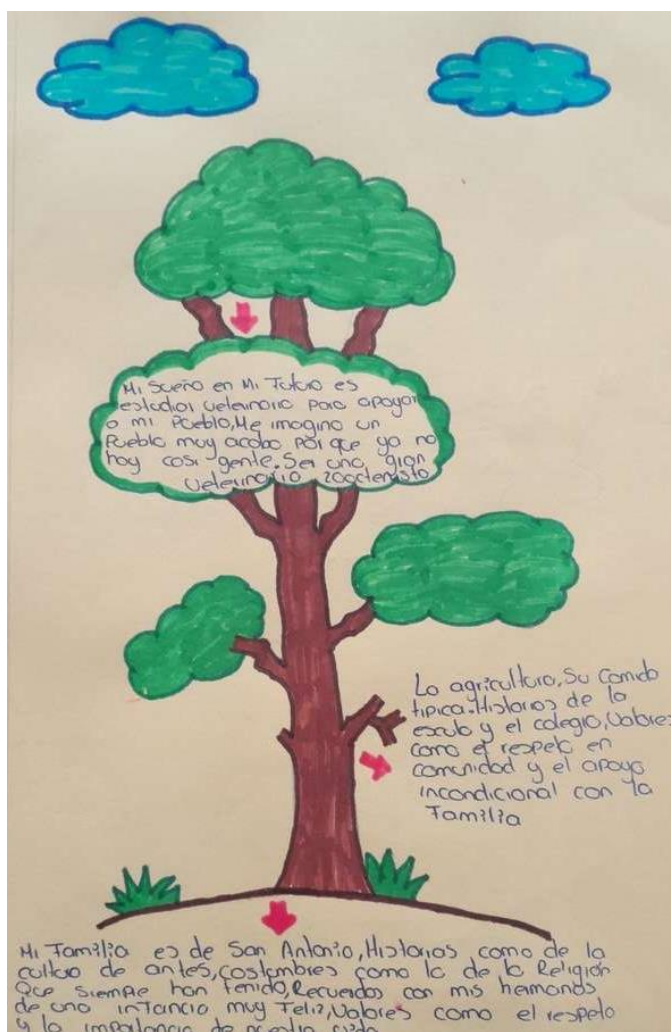 Mi sueño en Mi Futuro es
estudiar veterinaria para apoyar
a mi Pueblo, Me imagino un
Pueblo muy acabo por que ya no
hay casi gente. Ser una gran
veterinario zoocternista
La agricultura, Su comida
tipica. Historias de la
escula y el colegio, Valores
como el respeto en
comunidad y el apoyo
incondicional con la
Familia
Mi Familia es de San Antonio, Historias como de la
cultura de antes, costumbres como la de la Religión
Que siempre han tenido, Recuerdos con mis hermanos
de una infancia muy Feliz, Valores como el respeto
y la importancia de nuestra vida